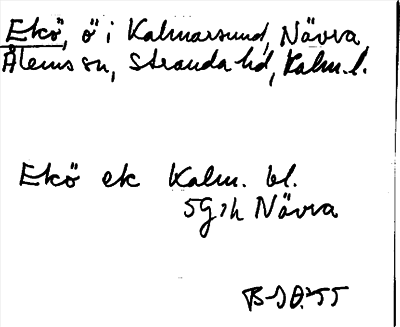 Ekö, ö i Kalmarsund, Nävra
Ålems sn, Stranda hd, Kalm. l.
Ekö ek Kalm. bl.
5G1h Nävra